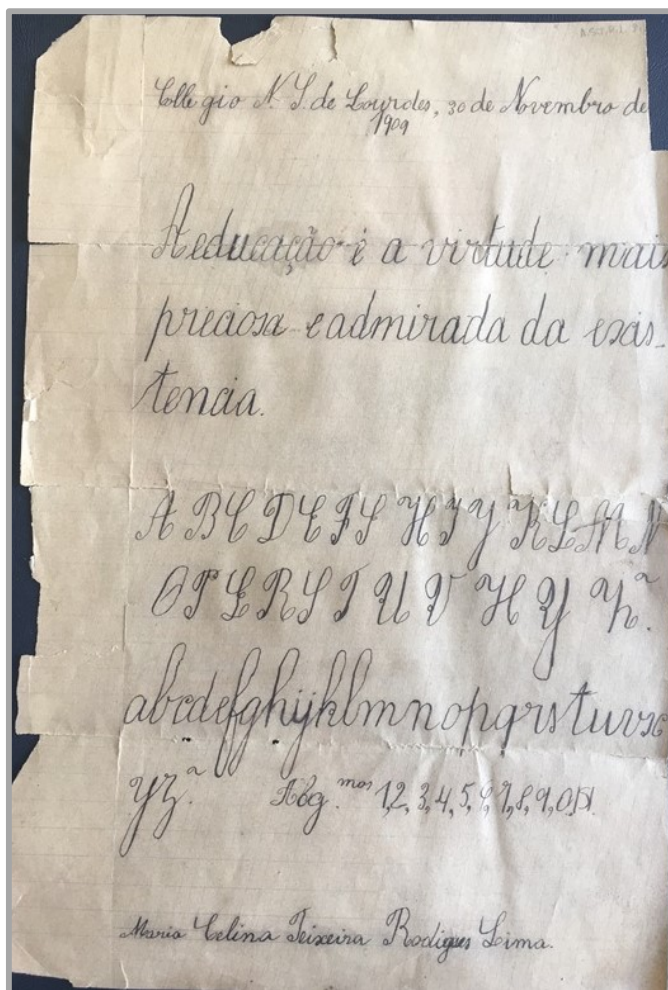 Collegio N. S. de Lourdes, 30 de Novembro de
1909
A educação é a virtude mais
preciosa e admirada da exis-
tencia.
A B C D E F G H I J K L M N
O P Q R S T U V X Y Z ~.
abcdefghijklmnopqrstuvx
yz~.
Alg.mos 1,2,3,4,5,6,7,8,9,0,
Maria Celina Teixeira Rodigues Lima.